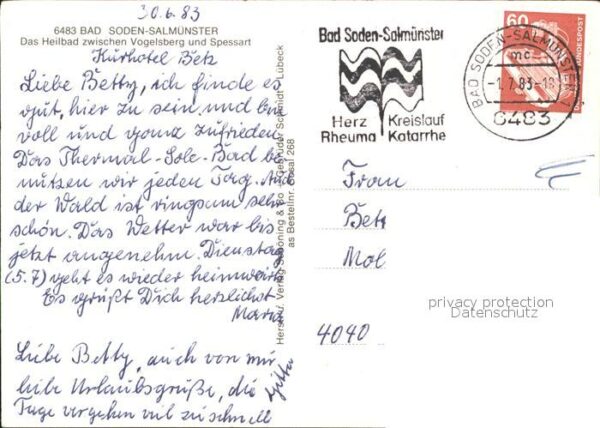 30.6.83
6483 BAD SODEN-SALMÜNSTER
Das Heilbad zwischen Vogelsberg und Spessart
Kurhotel Betz
Liebe Betty, ich finde es
gut, hier zu sein und bin
voll und ganz zufrieden.
Das Thermal-Sole-Bad be
nutzen wir jeden Tag. Auch
der Wald ist ringsum sehr
schön. Das Wetter war bis
jetzt angenehm. Dienstag
(5.7) geht es wieder heimwärts
Es grüßt Dich herzlichst
Maria
Liebe Betty, auch von mir
liebe Urlaubsgrüße, die
Tage vergehen viel zu schnell
Jutta
Herst. u. Verlag Schöning & Co + Gebrüder Schmidt · Lübeck
Bestellnr. Sosal 268
Bad Soden-Salmünster
Herz Kreislauf
Rheuma Katarrhe
60
BUNDESPOST
BAD SODEN-SALMÜNSTER 1
mc
-1.7.83-18
6483
Frau
Bett
Mol
4040
privacy protection
Datenschutz